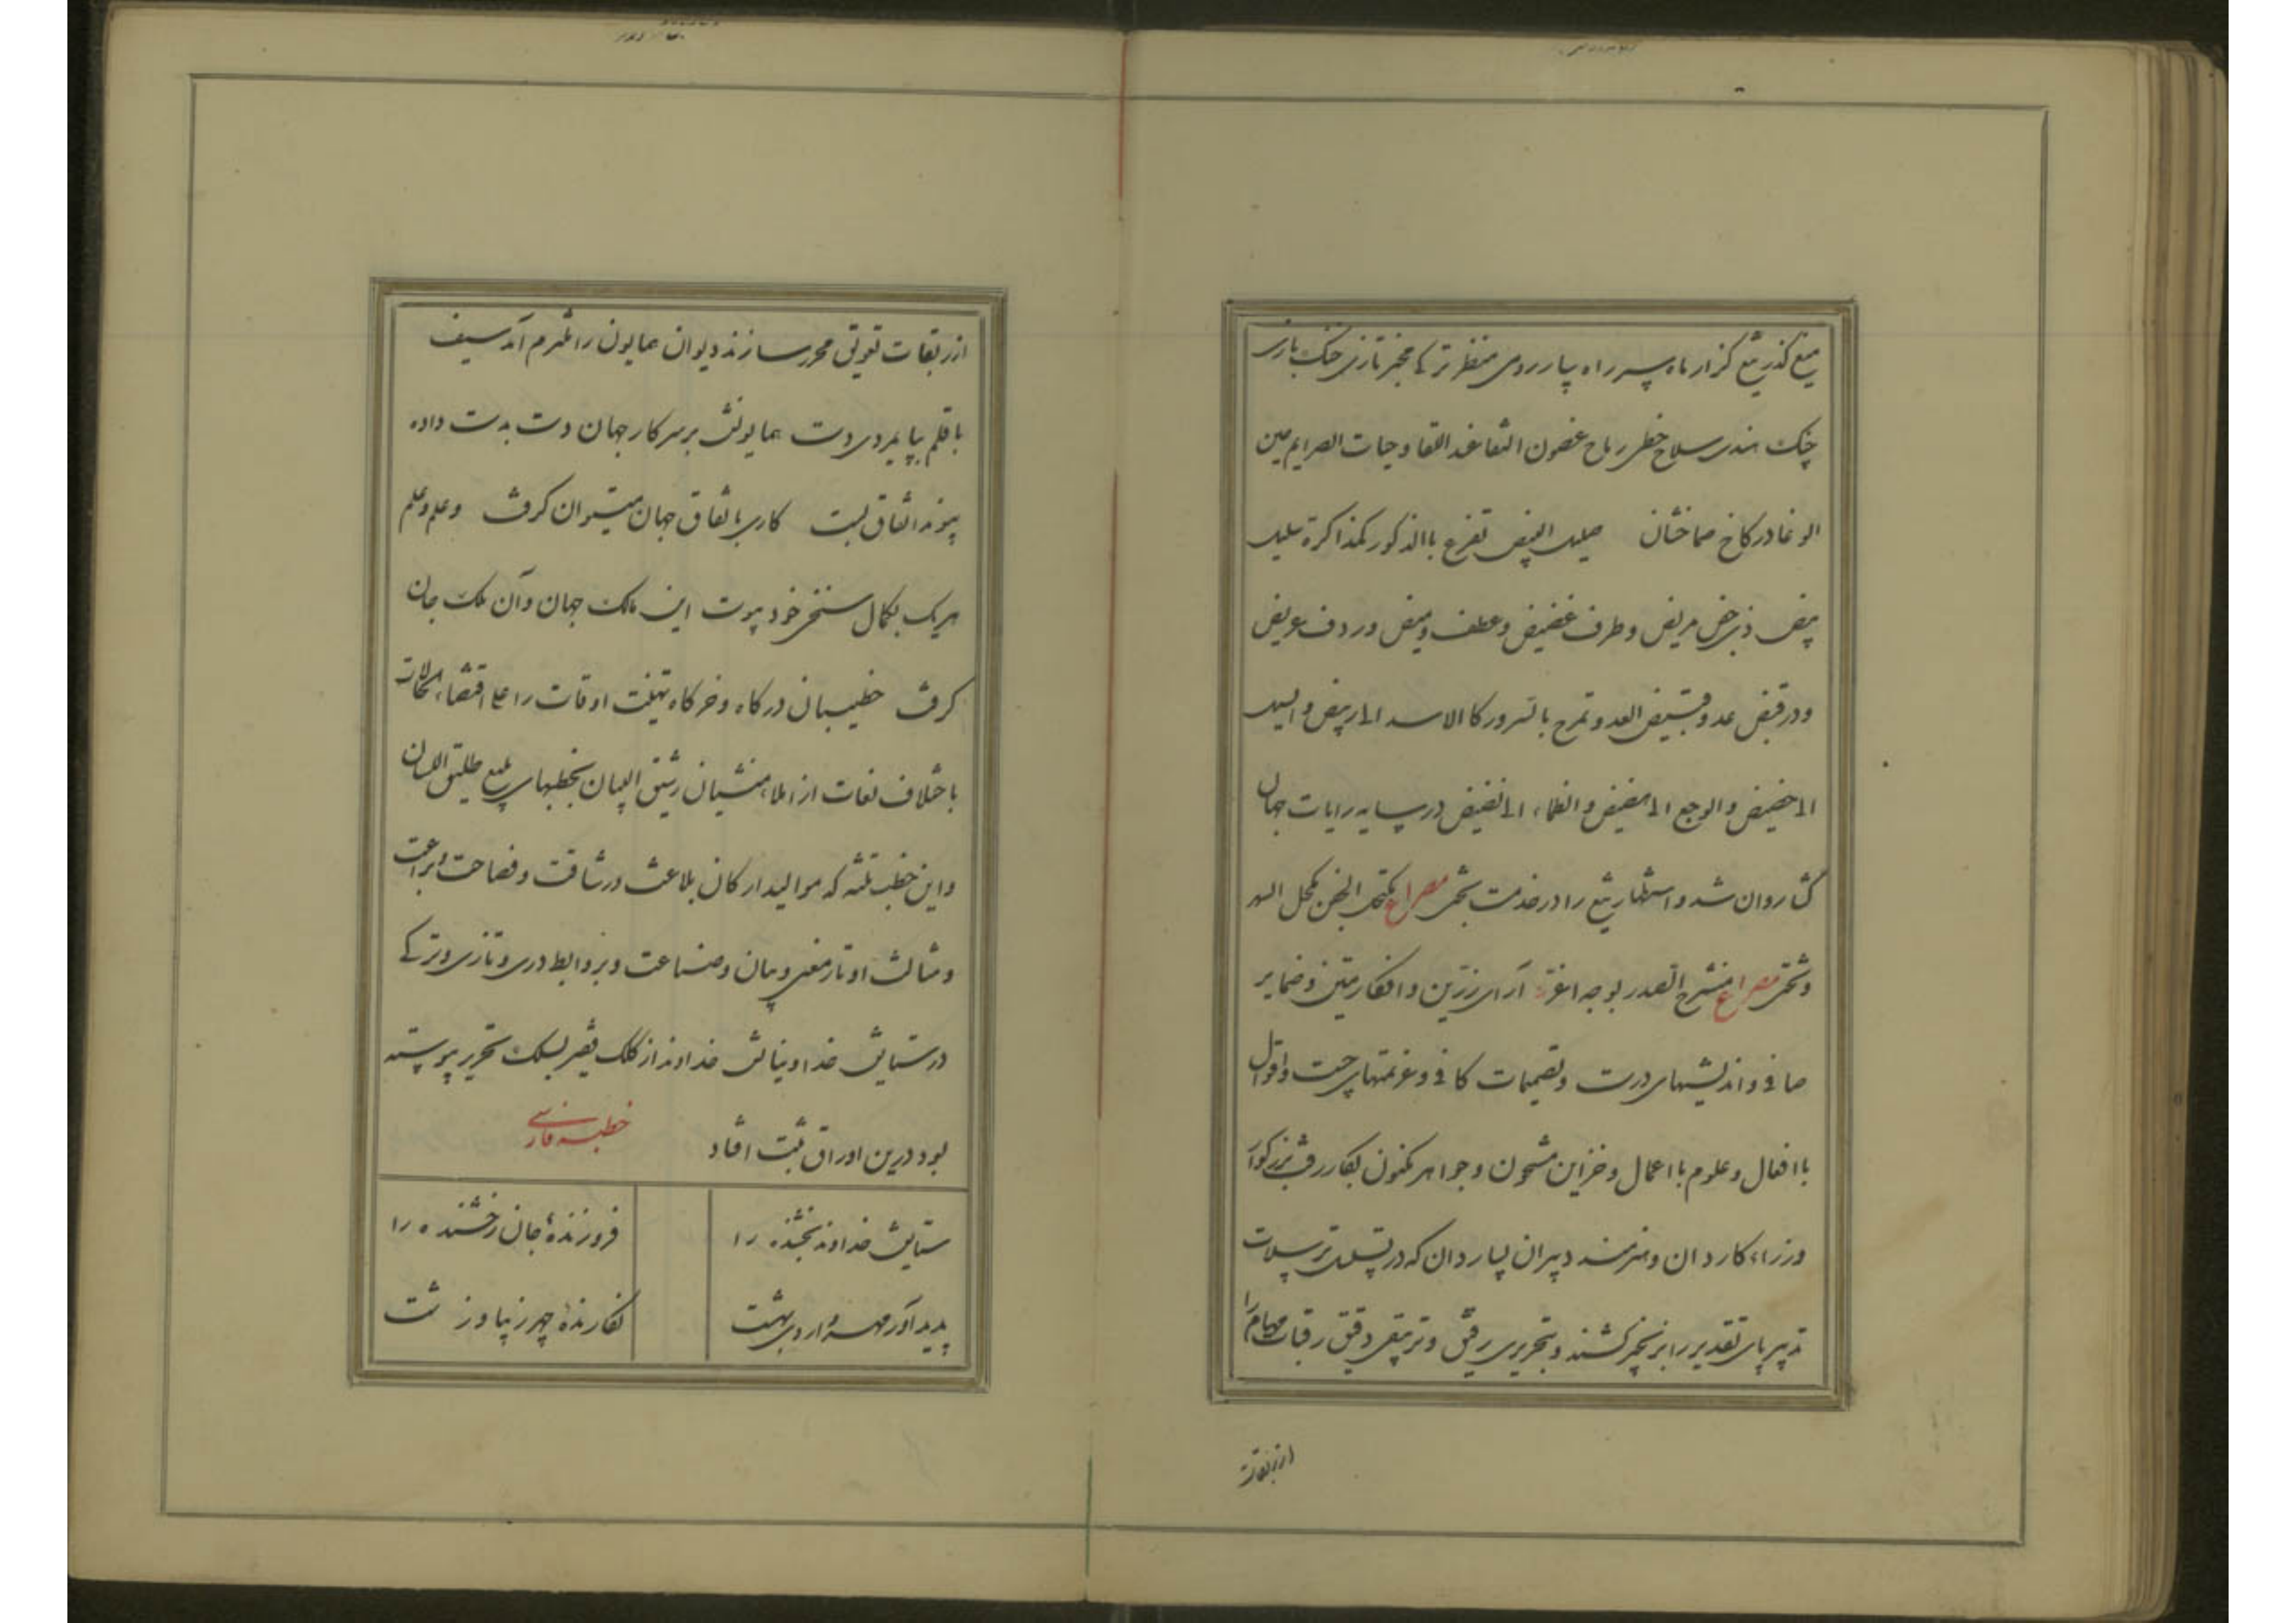 میغ گذر تیغ گزار ماه پسر راه سپار رومی منظر ترکی مخبر تازی خنک بازی
چنک هندی سلاح خطی رماح غصون النقا عند اللقا و حیات الصرایم حین
الوغا در کاخ صماخشان صلیل البیض تقرع باالذکور کمذاکرة بلیل
بیض ذی خص مریض و طرف غضیض و عطف ومیض و ردف عریض
و در قبض عدو قبیض العدو تمرح بالسرور کا الاسد الی ربیض و السیل
الی حضیض و الوجع الی مضیض و الظماء الی نضیض در سایه رایات جهان
گشا روان شد و استظهار تیغ را در خدمت بختی مصراع مکتحل الجفن بکحل السهر
و شخصی مصراع منشرح الصدر بوجه اغر آرای رزین و افکار متین و ضمایر
صافی و اندیشهای درست و تصمیمات کافی و عزیمتهای چست و اقوال
باافعال و علوم بااعمال و خزاین مشحون و جواهر مکنون بکار رفت بزرکوار
وزراء کاردان و هنرمند دبیران بسیاردان که در تسلسل ترسلات
تدبیر پای تقدیر را بزنجیر کشند و بتحریری رقیق و ترتیقی دقیق رقبات مهام را
از ربقات
از ربقات تعویق محرر سازند دیوان همایون را ملتزم آمد سیف
باقلم بپایمردی دست همایونش بر سر کار جهان دست بدست داده
پیوند اتفاق بست کاری باتفاق جهان میتوان کرفت و علم و علم
هریک بکمال سنخی خود پیوست این مالک جهان و آن ملک جان
کرفت خطیبان درکاه و خرکاه تهنیت اوقات را علی اقتضاء الحالات
باختلاف لغات از املاء منشیان رشیق البیان بخطبهای بلیغ طلیق اللسان
و این خطب ثلثه که موالید ارکان بلاغت و رشاقت و فصاحت و براعت
و مثالث اوتار معنی و بیان و صناعت و بزوابط دری و تازی و ترکی
در ستایش خدا و نیایش خداوند از کلک فقیر بسلک تحریر پیوسته
بود درین اوراق ثبت افتاد خطبه فارسی
ستایش خداوند بخشنده را فروزندهٔ جان رخشنده را
پدید آور مهر و اردی بهشت نکارندهٔ چهر زیبا و زشت